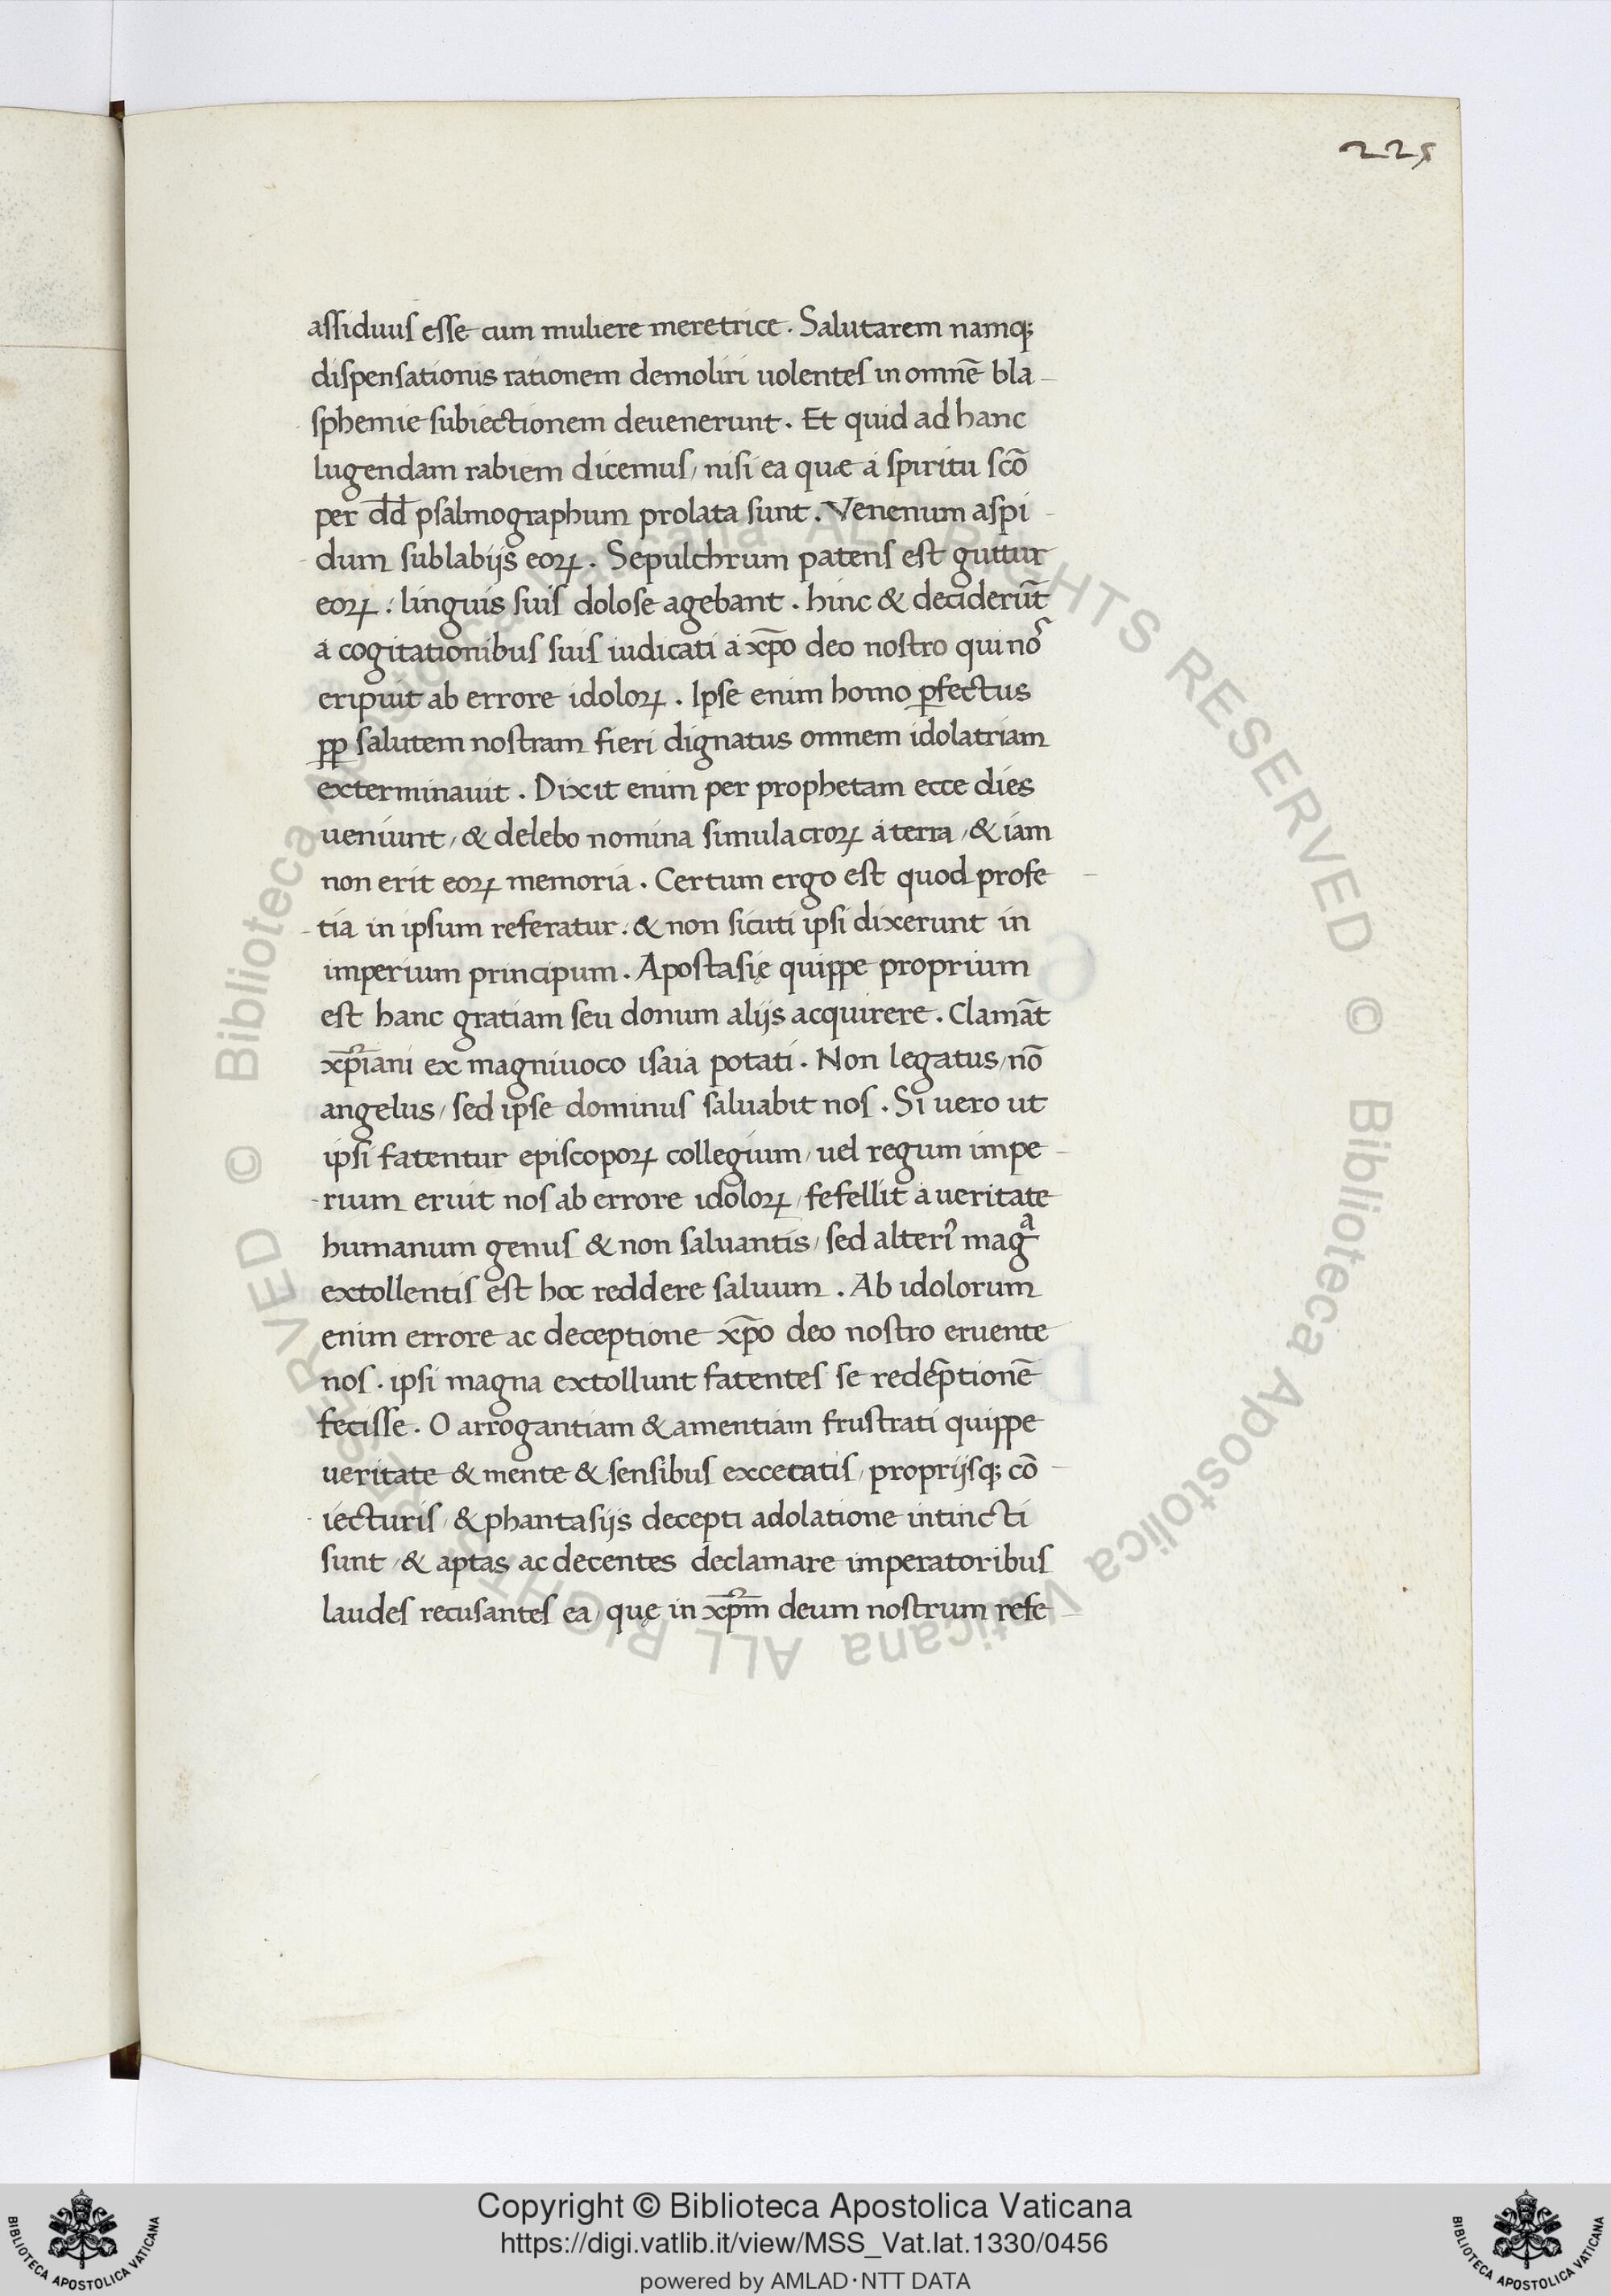 225
assiduus esse cum muliere meretrice. Salutarem namq;
dispensationis rationem demoliri uolentes in omnē bla-
sphemie subiectionem deuenerunt. Et quid ad hanc
lugendam rabiem dicemus, nisi ea quæ à spiritu scō
per dd̄ psalmographum prolata sunt. Venenum aspi-
dum sub labijs eoꝝ. Sepulchrum patens est guttur
eoꝝ: linguis suis dolose agebant. hinc & deciderūt
à cogitationibus suis iudicati à xp̄o deo nostro qui nos
eripuit ab errore idoloꝝ. Ipse enim homo ꝑfectus
ꝓꝑ salutem nostram fieri dignatus omnem idolatriam
exterminauit. Dixit enim per prophetam ecce dies
ueniunt, & delebo nomina simulacroꝝ à terra, & iam
non erit eoꝝ memoria. Certum ergo est quod profe-
tia in ipsum referatur: & non sicuti ipsi dixerunt in
imperium principum. Apostasię quippe proprium
est hanc gratiam seu donum alijs acquirere. Clamāt
xp̄iani ex magniuoco isaia potati. Non legatus, nō
angelus, sed ipse dominus saluabit nos. Si uero ut
ipsi fatentur episcopoꝝ collegium, uel regum impe-
rium eruit nos ab errore idoloꝝ, fefellit à ueritate
humanum genus & non saluantis, sed alteri᾽ magᵃ
extollentis est hoc reddere saluum. Ab idolorum
enim errore ac deceptione xp̄o deo nostro eruente
nos. ipsi magna extollunt fatentes se redēptionē
fecisse. O arrogantiam & amentiam frustrati quippe
ueritate & mente & sensibus excecatis, proprijsq; cō-
iecturis, & phantasijs decepti adolatione intincti
sunt, & aptas ac decentes declamare imperatoribus
laudes recusantes ea, quę in xp̄m deum nostrum refe-
© Biblioteca Apostolica Vaticana ALL RIGHTS RESERVED © Biblioteca Apostolica Vaticana ALL RIGHTS RESERVED
Copyright © Biblioteca Apostolica Vaticana
https://digi.vatlib.it/view/MSS_Vat.lat.1330/0456
powered by AMLAD・NTT DATA
BIBLIOTECA APOSTOLICA VATICANA
BIBLIOTECA APOSTOLICA VATICANA